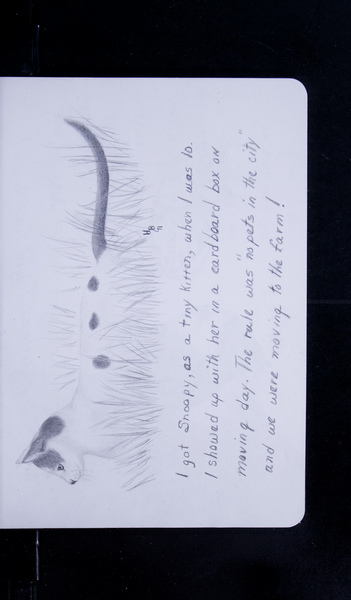 I got Snoopy, as a tiny kitten, when I was 10.
I showed up with her in a cardboard box on
moving day. The rule was "no pets in the city"
and we were moving to the farm!